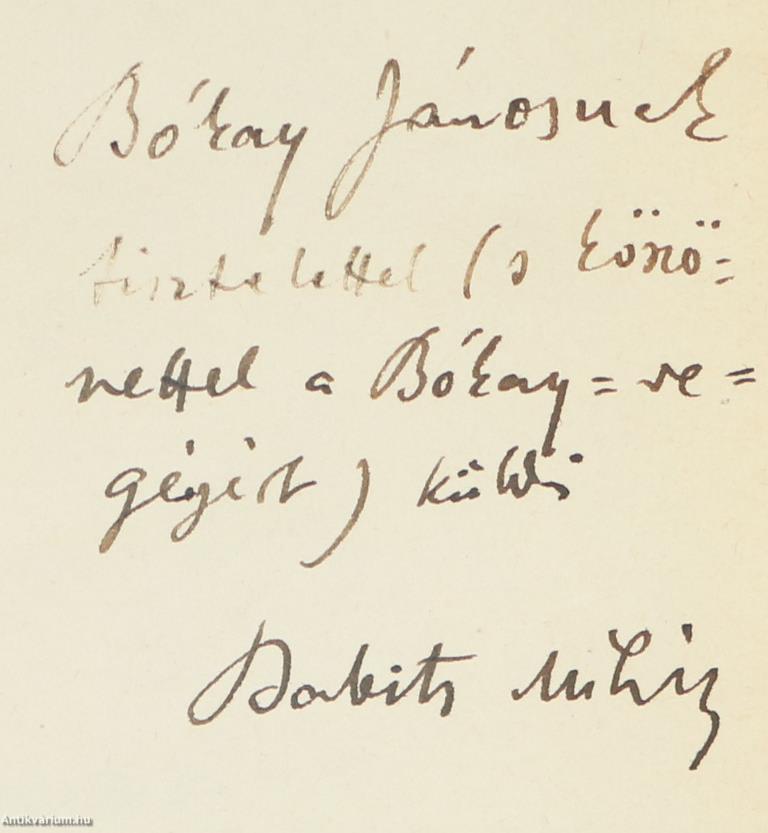 Bókay Jánosnak
tisztelettel (s köszö=
nettel a Bókay=re=
gényért) küldi
Babits Mihály
Antikvárium.hu